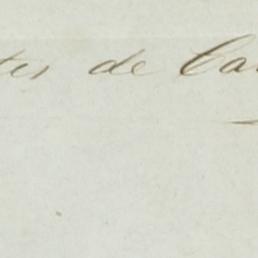 tes de Ca